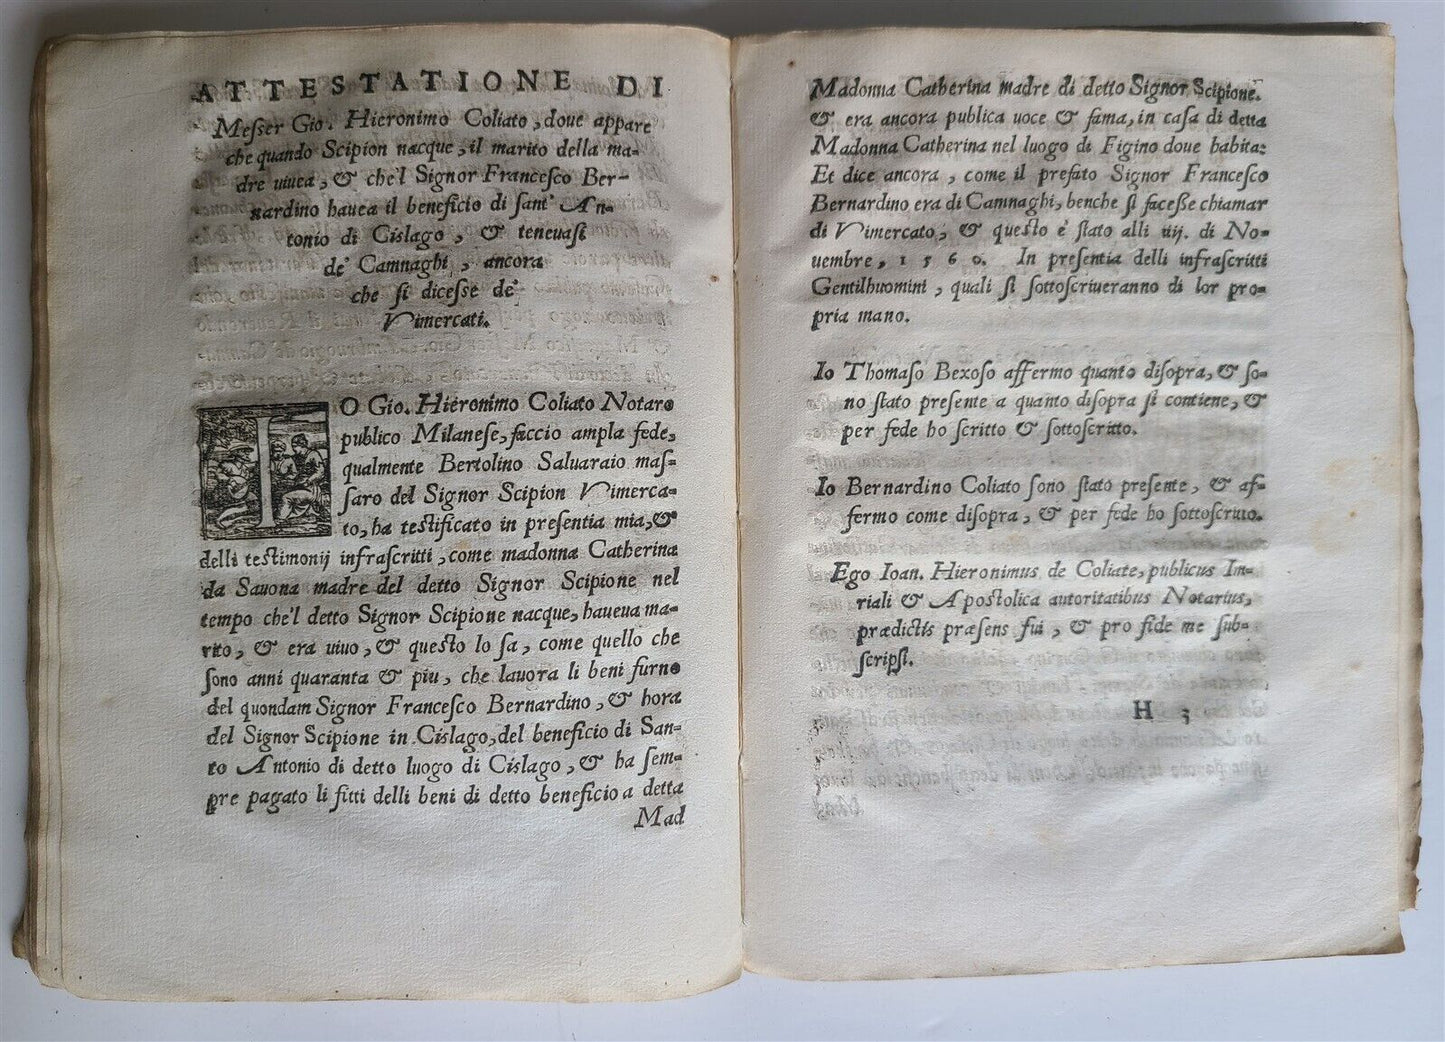 ATTESTATIONE DI
Messer Gio. Hieronimo Coliato, doue appare
che quando Scipion nacque, il marito della ma-
dre uiuea, & che'l Signor Francesco Ber-
nardino hauea il beneficio di sant' An-
tonio di Cislago, & teneuasi
de' Camnaghi, ancora
che si dicesse de'
Vimercati.
IO Gio. Hieronimo Coliato Notaro
publico Milanese, faccio ampla fede,
qualmente Bertolino Saluaraio mas-
saro del Signor Scipion Vimerca-
to, ha testificato in presentia mia, &
delli testimonij infrascritti, come madonna Catherina
da Sauona madre del detto Signor Scipione nel
tempo che'l detto Signor Scipione nacque, haueua ma-
rito, & era uiuo, & questo lo sa, come quello che
sono anni quaranta & piu, che lauora li beni furno
del quondam Signor Francesco Bernardino, & hora
del Signor Scipione in Cislago, del beneficio di San-
to Antonio di detto luogo di Cislago, & ha sem-
pre pagato li fitti delli beni di detto beneficio a detta
Mad
Madonna Catherina madre di detto Signor Scipione.
& era ancora publica uoce & fama, in casa di detta
Madonna Catherina nel luogo di Figino doue habita:
Et dice ancora, come il prefato Signor Francesco
Bernardino era di Camnaghi, benche si facesse chiamar
di Vimercato, & questo è stato alli iiij. di No-
uembre, 1560. In presentia delli infrascritti
Gentilhuomini, quali si sottoscriueranno di lor pro-
pria mano.
Io Thomaso Bexoso affermo quanto disopra, & so-
no stato presente a quanto disopra si contiene, &
per fede ho scritto & sottoscritto.
Io Bernardino Coliato sono stato presente, & af-
fermo come disopra, & per fede ho sottoscritto.
Ego Ioan. Hieronimus de Coliate, publicus Im-
riali & Apostolica autoritatibus Notarius,
prædictis præsens fui, & pro fide me sub-
scripsi.
H 3